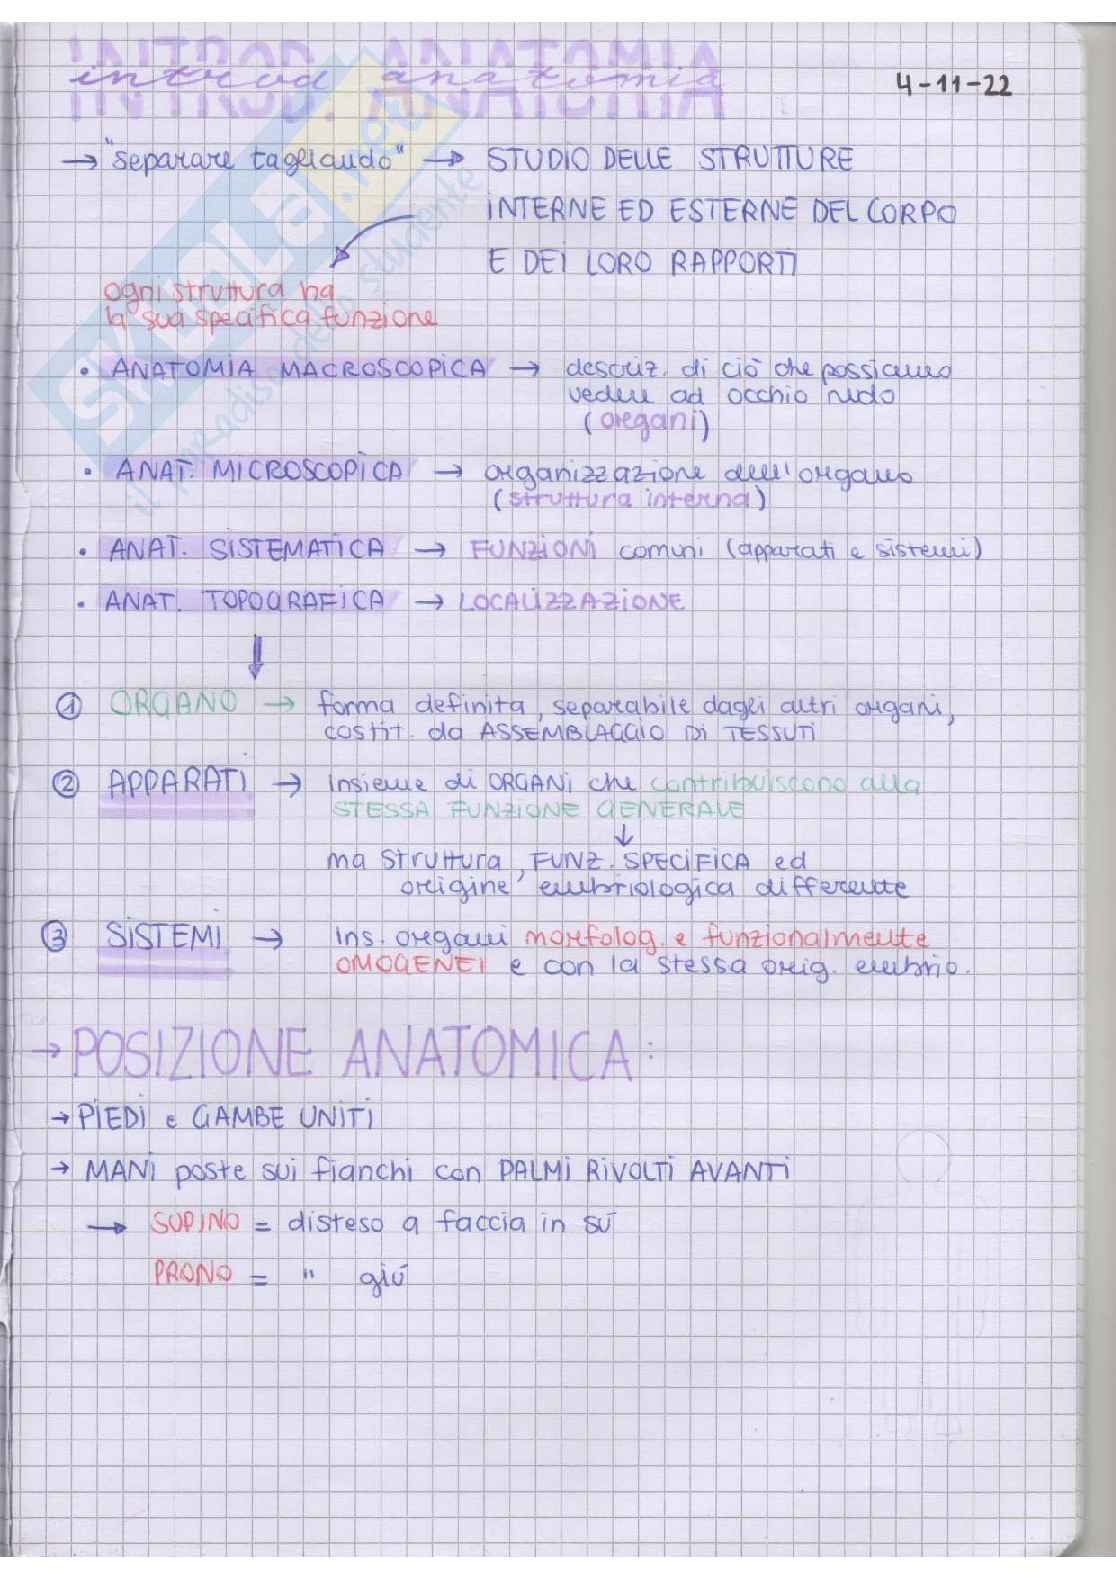 INTROD. ANATOMIA
introd anatomia
4-11-22
→ "separare tagliando" → STUDIO DELLE STRUTTURE
INTERNE ED ESTERNE DEL CORPO
E DEI LORO RAPPORTI
ogni struttura ha
la sua specifica funzione
• ANATOMIA MACROSCOPICA → descriz. di ciò che possiamo
vedere ad occhio nudo
(organi)
• ANAT. MICROSCOPICA → organizzazione dell'organo
(struttura interna)
• ANAT. SISTEMATICA → FUNZIONI comuni (apparati e sistemi)
• ANAT. TOPOGRAFICA → LOCALIZZAZIONE
↓
① ORGANO → forma definita, separabile dagli altri organi,
costit. da ASSEMBLAGGIO DI TESSUTI
② APPARATI → Insieme di ORGANI che contribuiscono alla
STESSA FUNZIONE GENERALE
↓
ma struttura, FUNZ. SPECIFICA ed
origine embriologica differente
③ SISTEMI → Ins. organi morfolog. e funzionalmente
OMOGENEI e con la stessa orig. embrio.
→ POSIZIONE ANATOMICA:
→ PIEDI e GAMBE UNITI
→ MANI poste sui fianchi con PALMI RIVOLTI AVANTI
→ SUPINO = disteso a faccia in sù
PRONO = " giù
SKUOLA.net
il paradiso dello studente